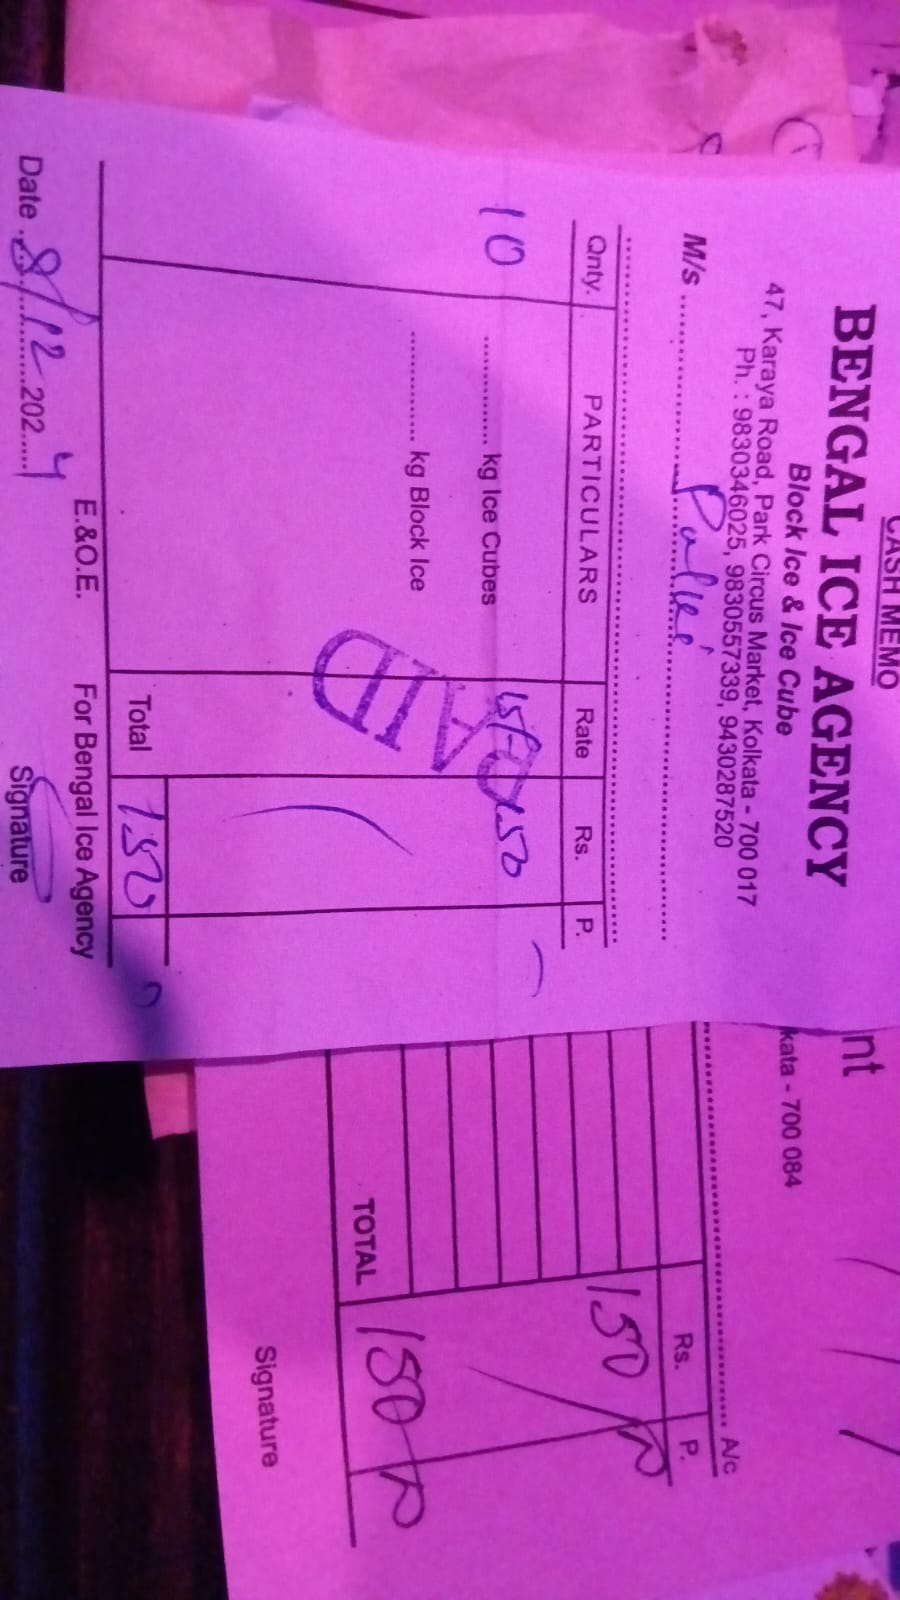 CASH MEMO
BENGAL ICE AGENCY
Block Ice & Ice Cube
47, Karaya Road, Park Circus Market, Kolkata - 700 017
Ph. : 9830346025, 9830557339, 9430287520
M/s
Qnty. PARTICULARS Rate Rs. P.
10 kg Ice Cubes 15/- 150
kg Block Ice
PAID
Total 150
E.&O.E. For Bengal Ice Agency
Date 8/12 2024 Signature
nt
kata - 700 084
A/c
Rs. P.
150
TOTAL 150
Signature